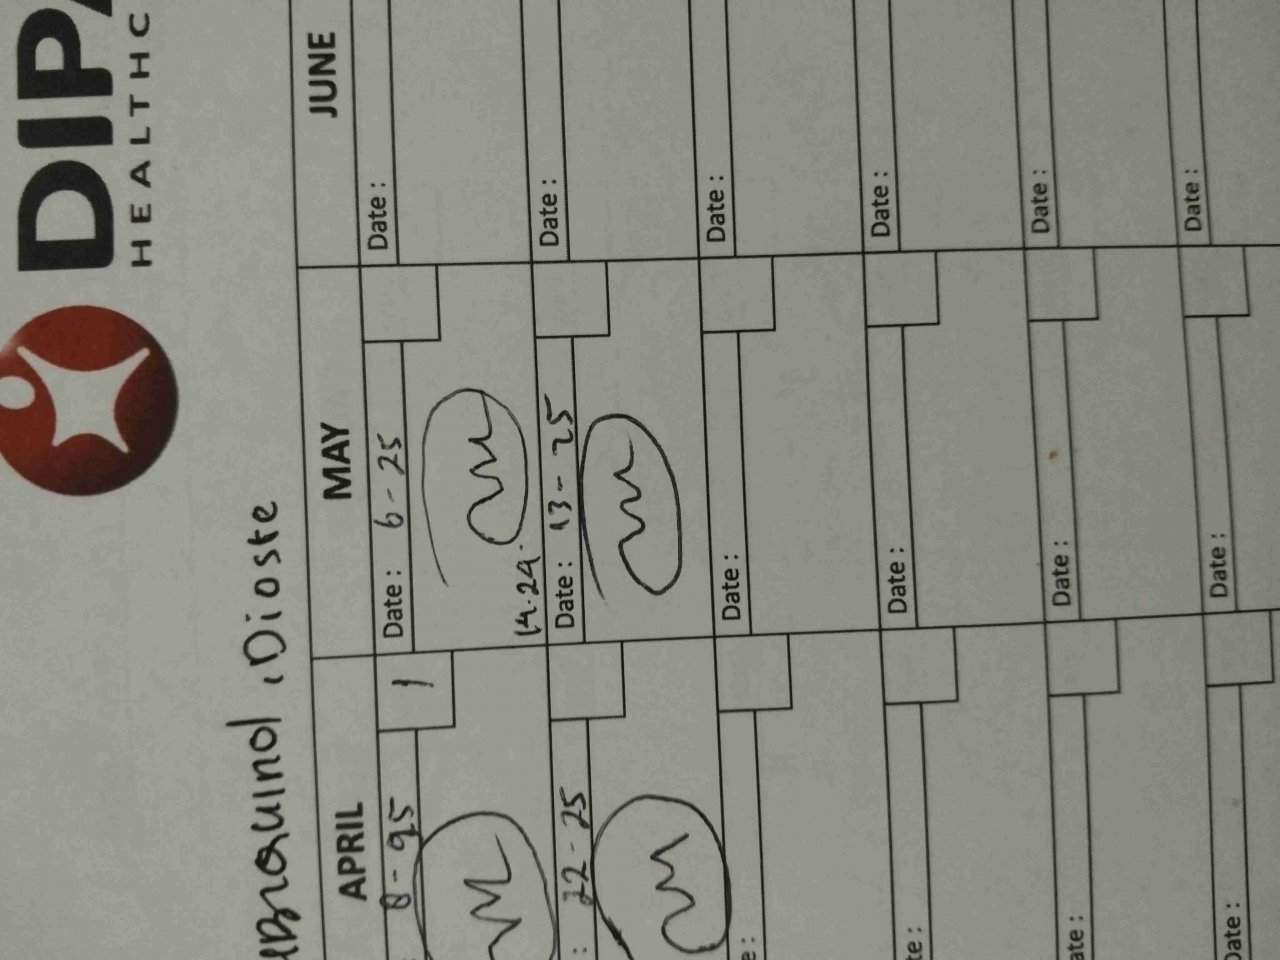 DIPA
HEALTHC
Dioste
APRIL MAY JUNE
8-25 1 Date: 6-25 Date:
14.24.
: 22-25 Date: 13-25 Date:
e: Date: Date:
te: Date: Date:
ate: Date: Date:
Date: Date: Date: